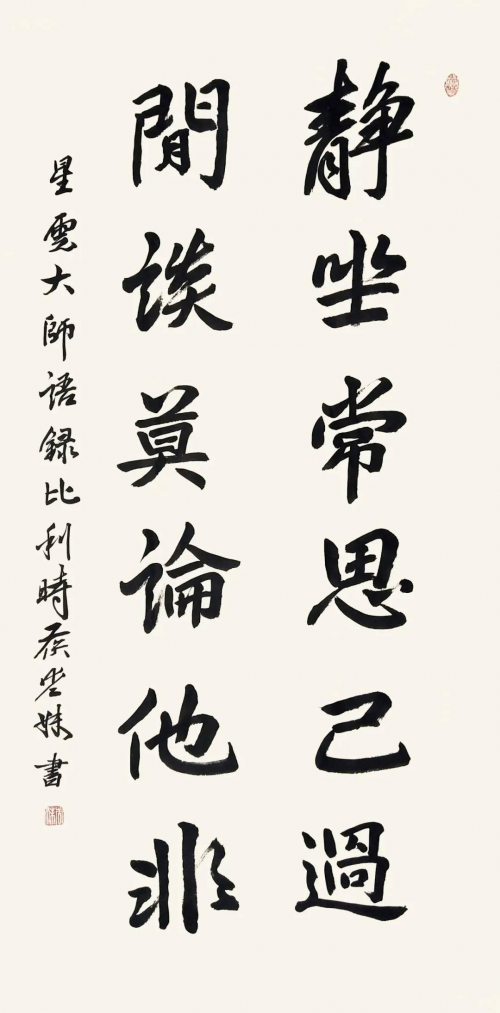 靜坐常思己過
閒談莫論他非
星雲大師語錄比利時侯愛妹書